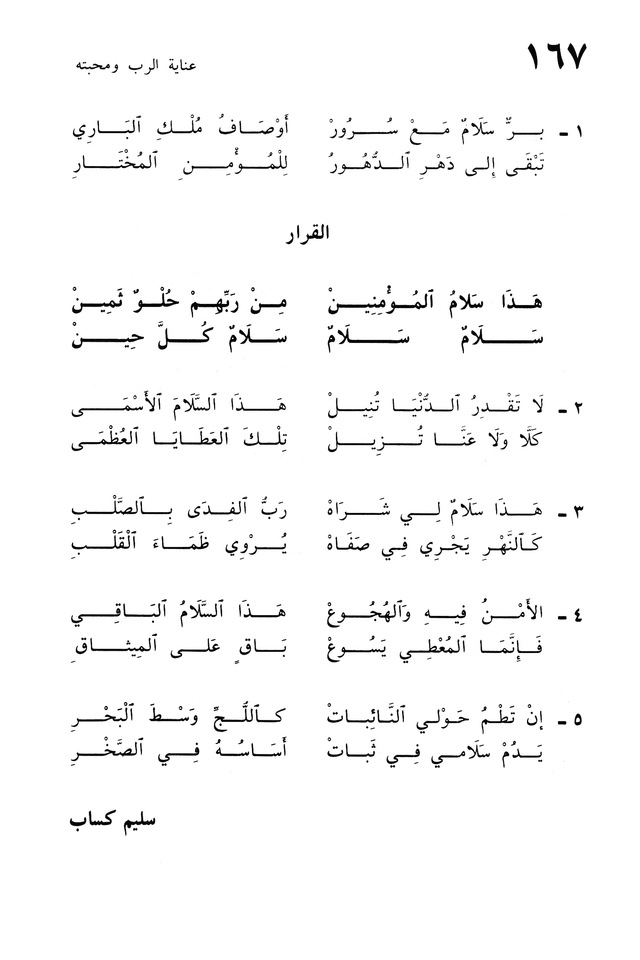 ١٦٧
عناية الرب ومحبته
١ - بِرٌّ سَلَامٌ مَعْ سُرُورْ أَوْصَافُ مُلْكِ ٱلبَارِي
تَبْقَى إِلى دَهْرِ ٱلدُّهُورُ لِلْمُؤْمِنِ ٱلمُخْتَارِ
القرار
هَذَا سَلامُ ٱلمُؤْمِنِينْ مِنْ رَبِّهِمْ حُلْوٌ ثَمِينْ
سَلَامٌ سَلَامٌ سَلَامٌ كُلَّ حِينْ
٢ - لَا تَقْدِرُ ٱلدُّنْيَا تُنِيلْ هَذَا السَّلَامَ الأَسْمَى
كَلَّا وَلَا عَنَّا تُزِيلْ تِلْكَ ٱلعَطَايَا ٱلعُظْمَى
٣ - هَذَا سَلَامٌ لِي شَرَاهْ رَبُّ ٱلفِدَى بِٱلصَّلْبِ
كَٱلنَّهْرِ يَجْرِي فِي صَفَاهْ يُرْوِي ظَمَاءَ ٱلْقَلْبِ
٤ - الأَمْنُ فِيهِ وَٱلهُجُوعْ هَذَا السَّلَامُ ٱلبَاقِي
فَإِنَّمَا ٱلمُعْطِي يَسُوعْ بَاقٍ عَلَى ٱلمِيثاقِ
٥ - إِنْ تَطْمُ حَوْلي ٱلنَّائِبَاتْ كَٱللُّجِّ وَسْطَ ٱلْبَحْرِ
يَدُمْ سَلَامي فِي ثَبَاتْ أَسَاسُهُ فِي ٱلصَّخْرِ
سليم كساب